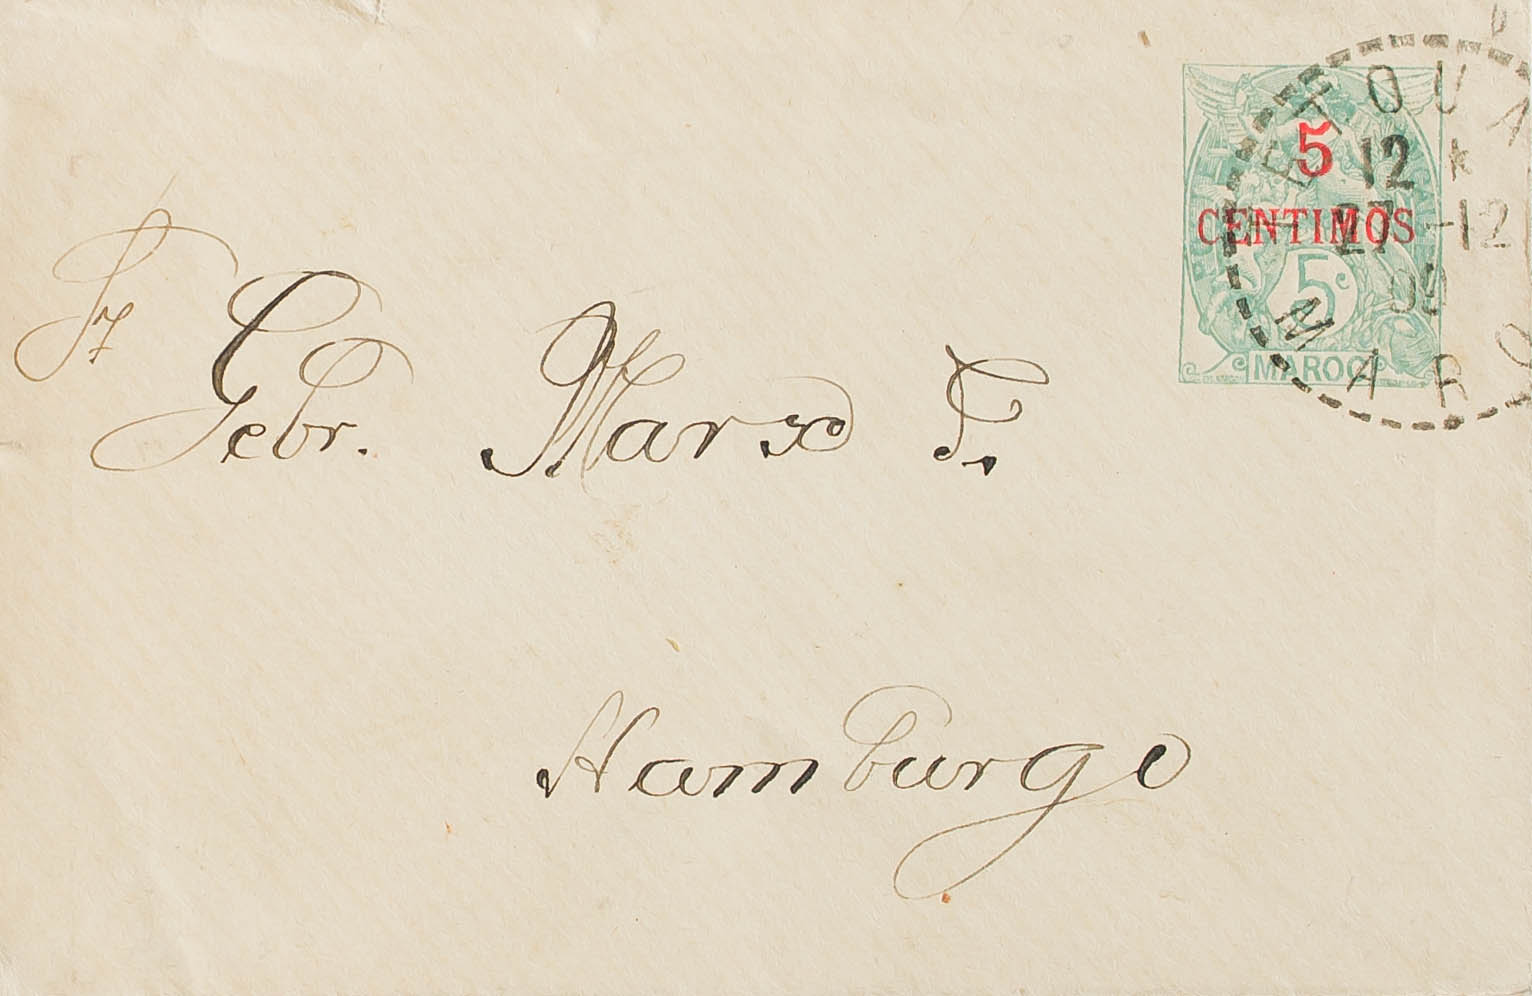 5
CENTIMOS
5c
MAROC
TETOUA
12
27 -12
09
MARO
Gebr. Marx F.
Hamburgo